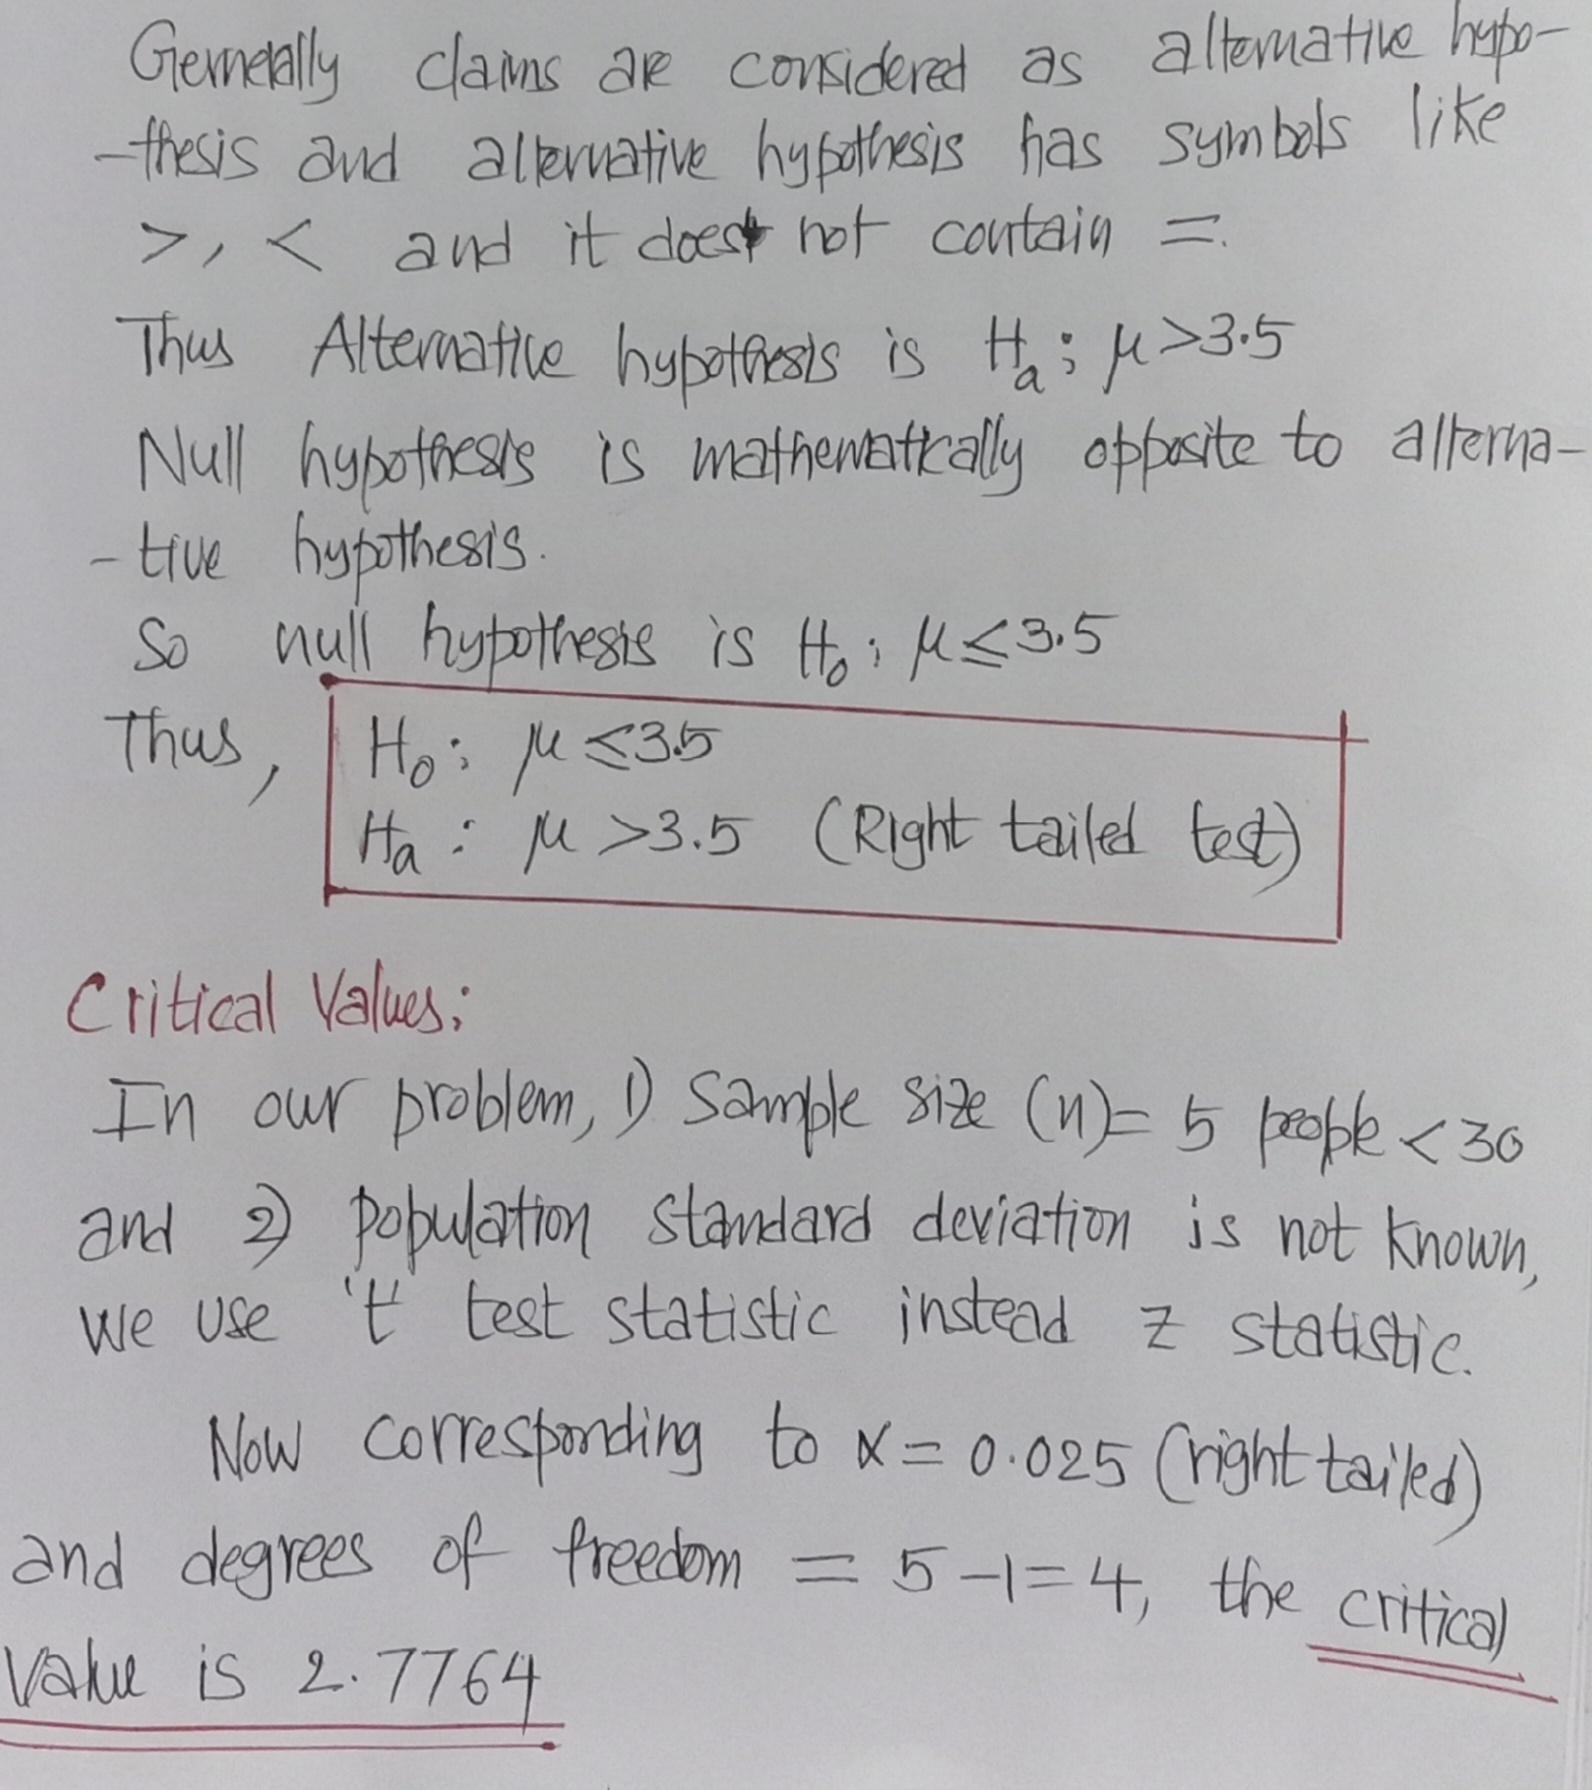 Gernerally claims are considered as alternative hypo-
-thesis and alternative hypothesis has symbols like
>, < and it does not contain =.
Thus Alternative hypothesis is Ha: μ>3.5
Null hypothesis is mathematically opposite to alterna-
-tive hypothesis.
So null hypothesis is H₀: μ≤3.5
Thus, H₀: μ≤3.5
Ha: μ>3.5 (Right tailed test)
Critical Values:
In our problem, 1) Sample size (n)= 5 people <30
and 2) Population standard deviation is not known,
we use 't' test statistic instead z statistic.
Now corresponding to α=0.025 (right tailed)
and degrees of freedom = 5-1=4, the critical
value is 2.7764